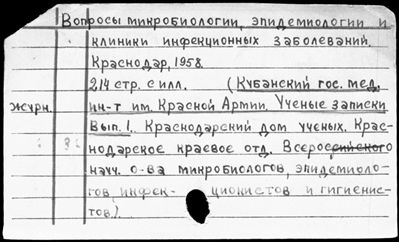 Вопросы микробиологии, эпидемиологии и
клиники инфекционных заболеваний.
Краснодар, 1958.
214 стр. с илл. (Кубанский гос. мед.
журн. ин-т им. Красной Армии. Ученые записки
Вып. 1. Краснодарский дом ученых. Крас-
нодарское краевое отд. Всероссийского
науч. о-ва микробиологов, эпидемиоло-
гов, инфек- ционистов и гигиенис-
тов.)